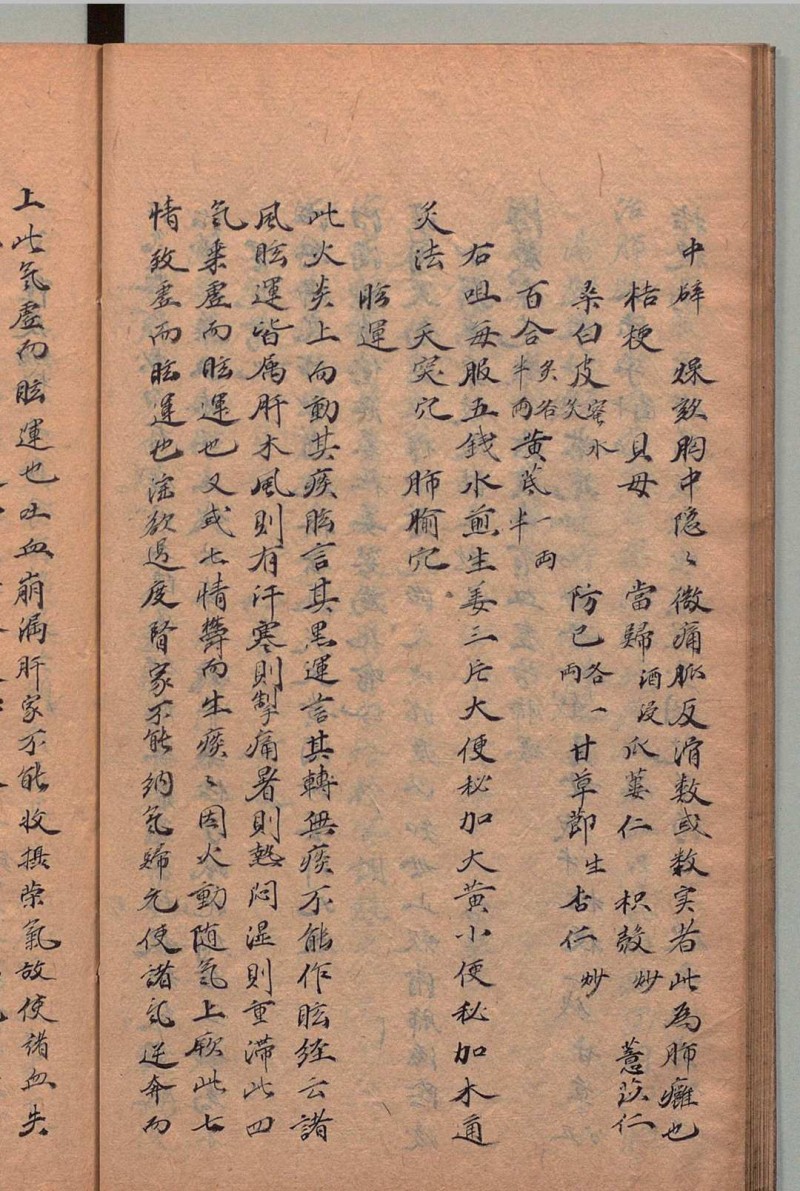 中辟 燥欬胸中隐〻微痛脈反滑数或数实者此為肺癰也
桔梗 貝母 當歸酒浸 瓜蔞仁 枳殼炒 薏苡仁
桒白皮蜜水炙 防已各一両 甘草節生 杏仁炒
百合炙各半両 黄芪一両半
右咀每服五錢水煎生姜三片大便秘加大黄小便秘加木通
灸法 天突穴 肺腧穴
眩運
此火炎上而動其痰眩言其黒運言其轉無痰不能作眩経云諸
風眩運皆属肝木風則有汗寒則掣痛暑則熱悶湿則重滞此四
氣乗虚而眩運也又或七情欝而生痰〻因火動随氣上厥此七
情致虚而眩運也淫欲過度腎家不能納氣歸元使諸氣逆奔而
上此氣虚而眩運也吐血崩漏肝家不能收攝栄氣故使諸血失